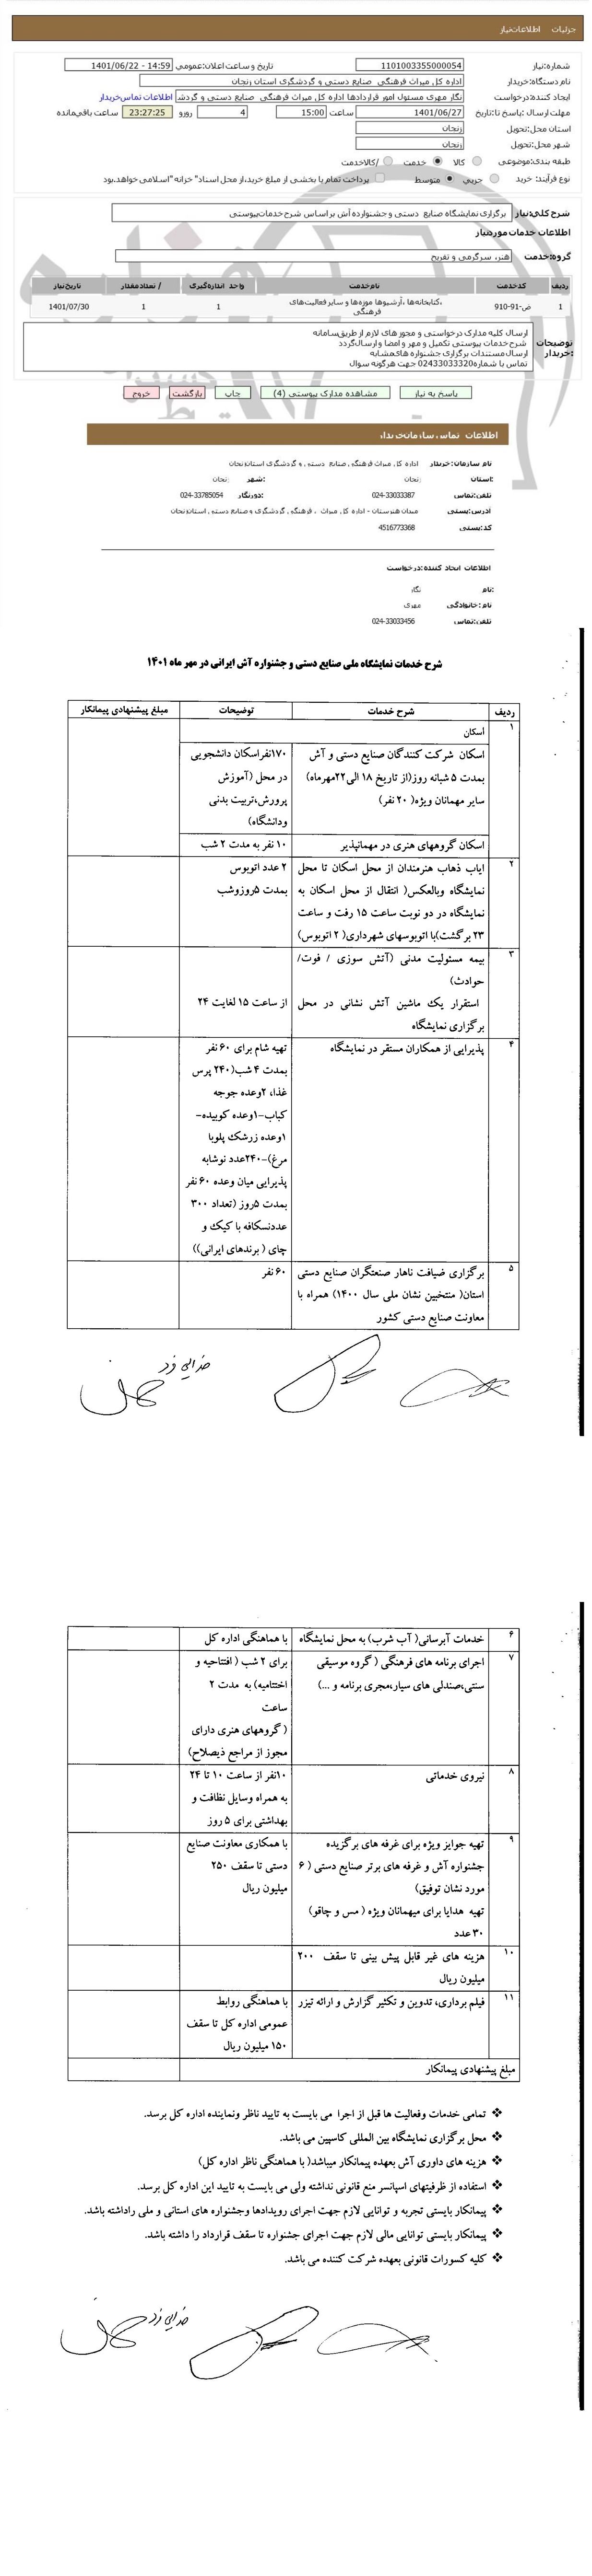 جزئیات اطلاعات نیاز
شماره نیاز: 1101003355000054 تاریخ و ساعت اعلان عمومی: 14:59 - 1401/06/22
نام دستگاه خریدار: اداره کل میراث فرهنگی صنایع دستی و گردشگری استان زنجان
ایجاد کننده درخواست: نگار مهری مسئول امور قراردادها اداره کل میراث فرهنگی صنایع دستی و گردش اطلاعات تماس خریدار
مهلت ارسال پاسخ تا تاریخ: 1401/06/27 ساعت 15:00 4 روز و 23:27:25 ساعت باقی مانده
استان محل تحویل: زنجان
شهر محل تحویل: زنجان
طبقه بندی موضوعی: کالا خدمت کالا/خدمت
نوع فرآیند خرید: جزیی متوسط پرداخت تمام یا بخشی از مبلغ خرید،از محل اسناد" خزانه "اسلامی خواهد بود.
شرح کلی نیاز: برگزاری نمایشگاه صنایع دستی و جشنوارده آش بر اساس شرح خدمات پیوستی
اطلاعات خدمات مورد نیاز
گروه خدمت: هنر، سرگرمی و تفریح
ردیف کد خدمت نام خدمت واحد اندازه گیری تعداد / مقدار تاریخ نیاز
1 ض-91-910 کتابخانه‌ها ،آرشیوها موزه‌ها و سایر فعالیت‌های فرهنگی، 1 1 1401/07/30
توضیحات خریدار:
ارسال کلیه مدارک درخواستی و مجوز های لازم از طریق سامانه
شرح خدمات پیوستی تکمیل و مهر و امضا و ارسال گردد
ارسال مستندات برگزاری جشنواره های مشابه
تماس با شماره 02433033320 جهت هرگونه سوال
پاسخ به نیاز مشاهده مدارک پیوستی (4) چاپ بازگشت خروج
اطلاعات تماس سازمان خریدار
نام سازمان خریدار: اداره کل میراث فرهنگی صنایع دستی و گردشگری استان زنجان
استان: زنجان شهر: زنجان
تلفن تماس: 024-33033387 دورنگار: 024-33785054
آدرس پستی: میدان هنرستان - اداره کل میراث ، فرهنگی گردشگری و صنایع دستی استان زنجان
کد پستی: 4516773368
اطلاعات ایجاد کننده درخواست
نام: نگار
نام خانوادگی: مهری
تلفن تماس: 024-33033456
شرح خدمات نمایشگاه ملی صنایع دستی و جشنواره آش ایرانی در مهر ماه ۱۴۰۱
ردیف شرح خدمات توضیحات مبلغ پیشنهادی پیمانکار
۱ اسکان
اسکان شرکت کنندگان صنایع دستی و آش
بمدت ۵ شبانه روز(از تاریخ ۱۸ الی۲۲مهرماه)
سایر مهمانان ویژه( ۲۰ نفر)
۱۷۰نفراسکان دانشجویی
در محل (آموزش
پرورش،تربیت بدنی
ودانشگاه)
اسکان گروههای هنری در مهمانپذیر ۱۰ نفر به مدت ۲ شب
۲ ایاب ذهاب هنرمندان از محل اسکان تا محل
نمایشگاه وبالعکس( انتقال از محل اسکان به
نمایشگاه در دو نوبت ساعت ۱۵ رفت و ساعت
۲۳ برگشت)با اتوبوسهای شهرداری( ۲ اتوبوس)
۲ عدد اتوبوس
بمدت ۵روزوشب
۳ بیمه مسئولیت مدنی (آتش سوزی / فوت/
حوادث)
استقرار یک ماشین آتش نشانی در محل
برگزاری نمایشگاه
از ساعت ۱۵ لغایت ۲۴
۴ پذیرایی از همکاران مستقر در نمایشگاه
تهیه شام برای ۶۰ نفر
بمدت ۴ شب(۲۴۰ پرس
غذا، ۲وعده جوجه
کباب-۱وعده کوبیده-
۱وعده زرشک پلوبا
مرغ)-۲۴۰عدد نوشابه
پذیرایی میان وعده ۶۰ نفر
بمدت ۵روز (تعداد ۳۰۰
عددنسکافه با کیک و
چای ( برندهای ایرانی))
۵ برگزاری ضیافت ناهار صنعتگران صنایع دستی
استان( منتخبین نشان ملی سال ۱۴۰۰) همراه با
معاونت صنایع دستی کشور
۶۰ نفر
خدایی فرد
۶ خدمات آبرسانی( آب شرب) به محل نمایشگاه با هماهنگی اداره کل
۷ اجرای برنامه های فرهنگی ( گروه موسیقی
سنتی،صندلی های سیار،مجری برنامه و ...)
برای ۲ شب ( افتتاحیه و
اختتامیه) به مدت ۲
ساعت
( گروههای هنری دارای
مجوز از مراجع ذیصلاح)
۸ نیروی خدماتی
۱۰نفر از ساعت ۱۰ تا ۲۴
به همراه وسایل نظافت و
بهداشتی برای ۵ روز
۹ تهیه جوایز ویژه برای غرفه های برگزیده
جشنواره آش و غرفه های برتر صنایع دستی ( ۶
مورد نشان توفیق)
تهیه هدایا برای میهمانان ویژه ( مس و چاقو)
۳۰ عدد
با همکاری معاونت صنایع
دستی تا سقف ۲۵۰
میلیون ریال
۱۰ هزینه های غیر قابل پیش بینی تا سقف ۲۰۰
میلیون ریال
۱۱ فیلم برداری، تدوین و تکثیر گزارش و ارائه تیزر
با هماهنگی روابط
عمومی اداره کل تا سقف
۱۵۰ میلیون ریال
مبلغ پیشنهادی پیمانکار
❖ تمامی خدمات وفعالیت ها قبل از اجرا می بایست به تایید ناظر ونماینده اداره کل برسد.
❖ محل برگزاری نمایشگاه بین المللی کاسپین می باشد.
❖ هزینه های داوری آش بعهده پیمانکار میباشد( با هماهنگی ناظر اداره کل)
❖ استفاده از ظرفیتهای اسپانسر منع قانونی نداشته ولی می بایست به تایید این اداره کل برسد.
❖ پیمانکار بایستی تجربه و توانایی لازم جهت اجرای رویدادها وجشنواره های استانی و ملی راداشته باشد.
❖ پیمانکار بایستی توانایی مالی لازم جهت اجرای جشنواره تا سقف قرارداد را داشته باشد.
❖ کلیه کسورات قانونی بعهده شرکت کننده می باشد.
خدایی فرد